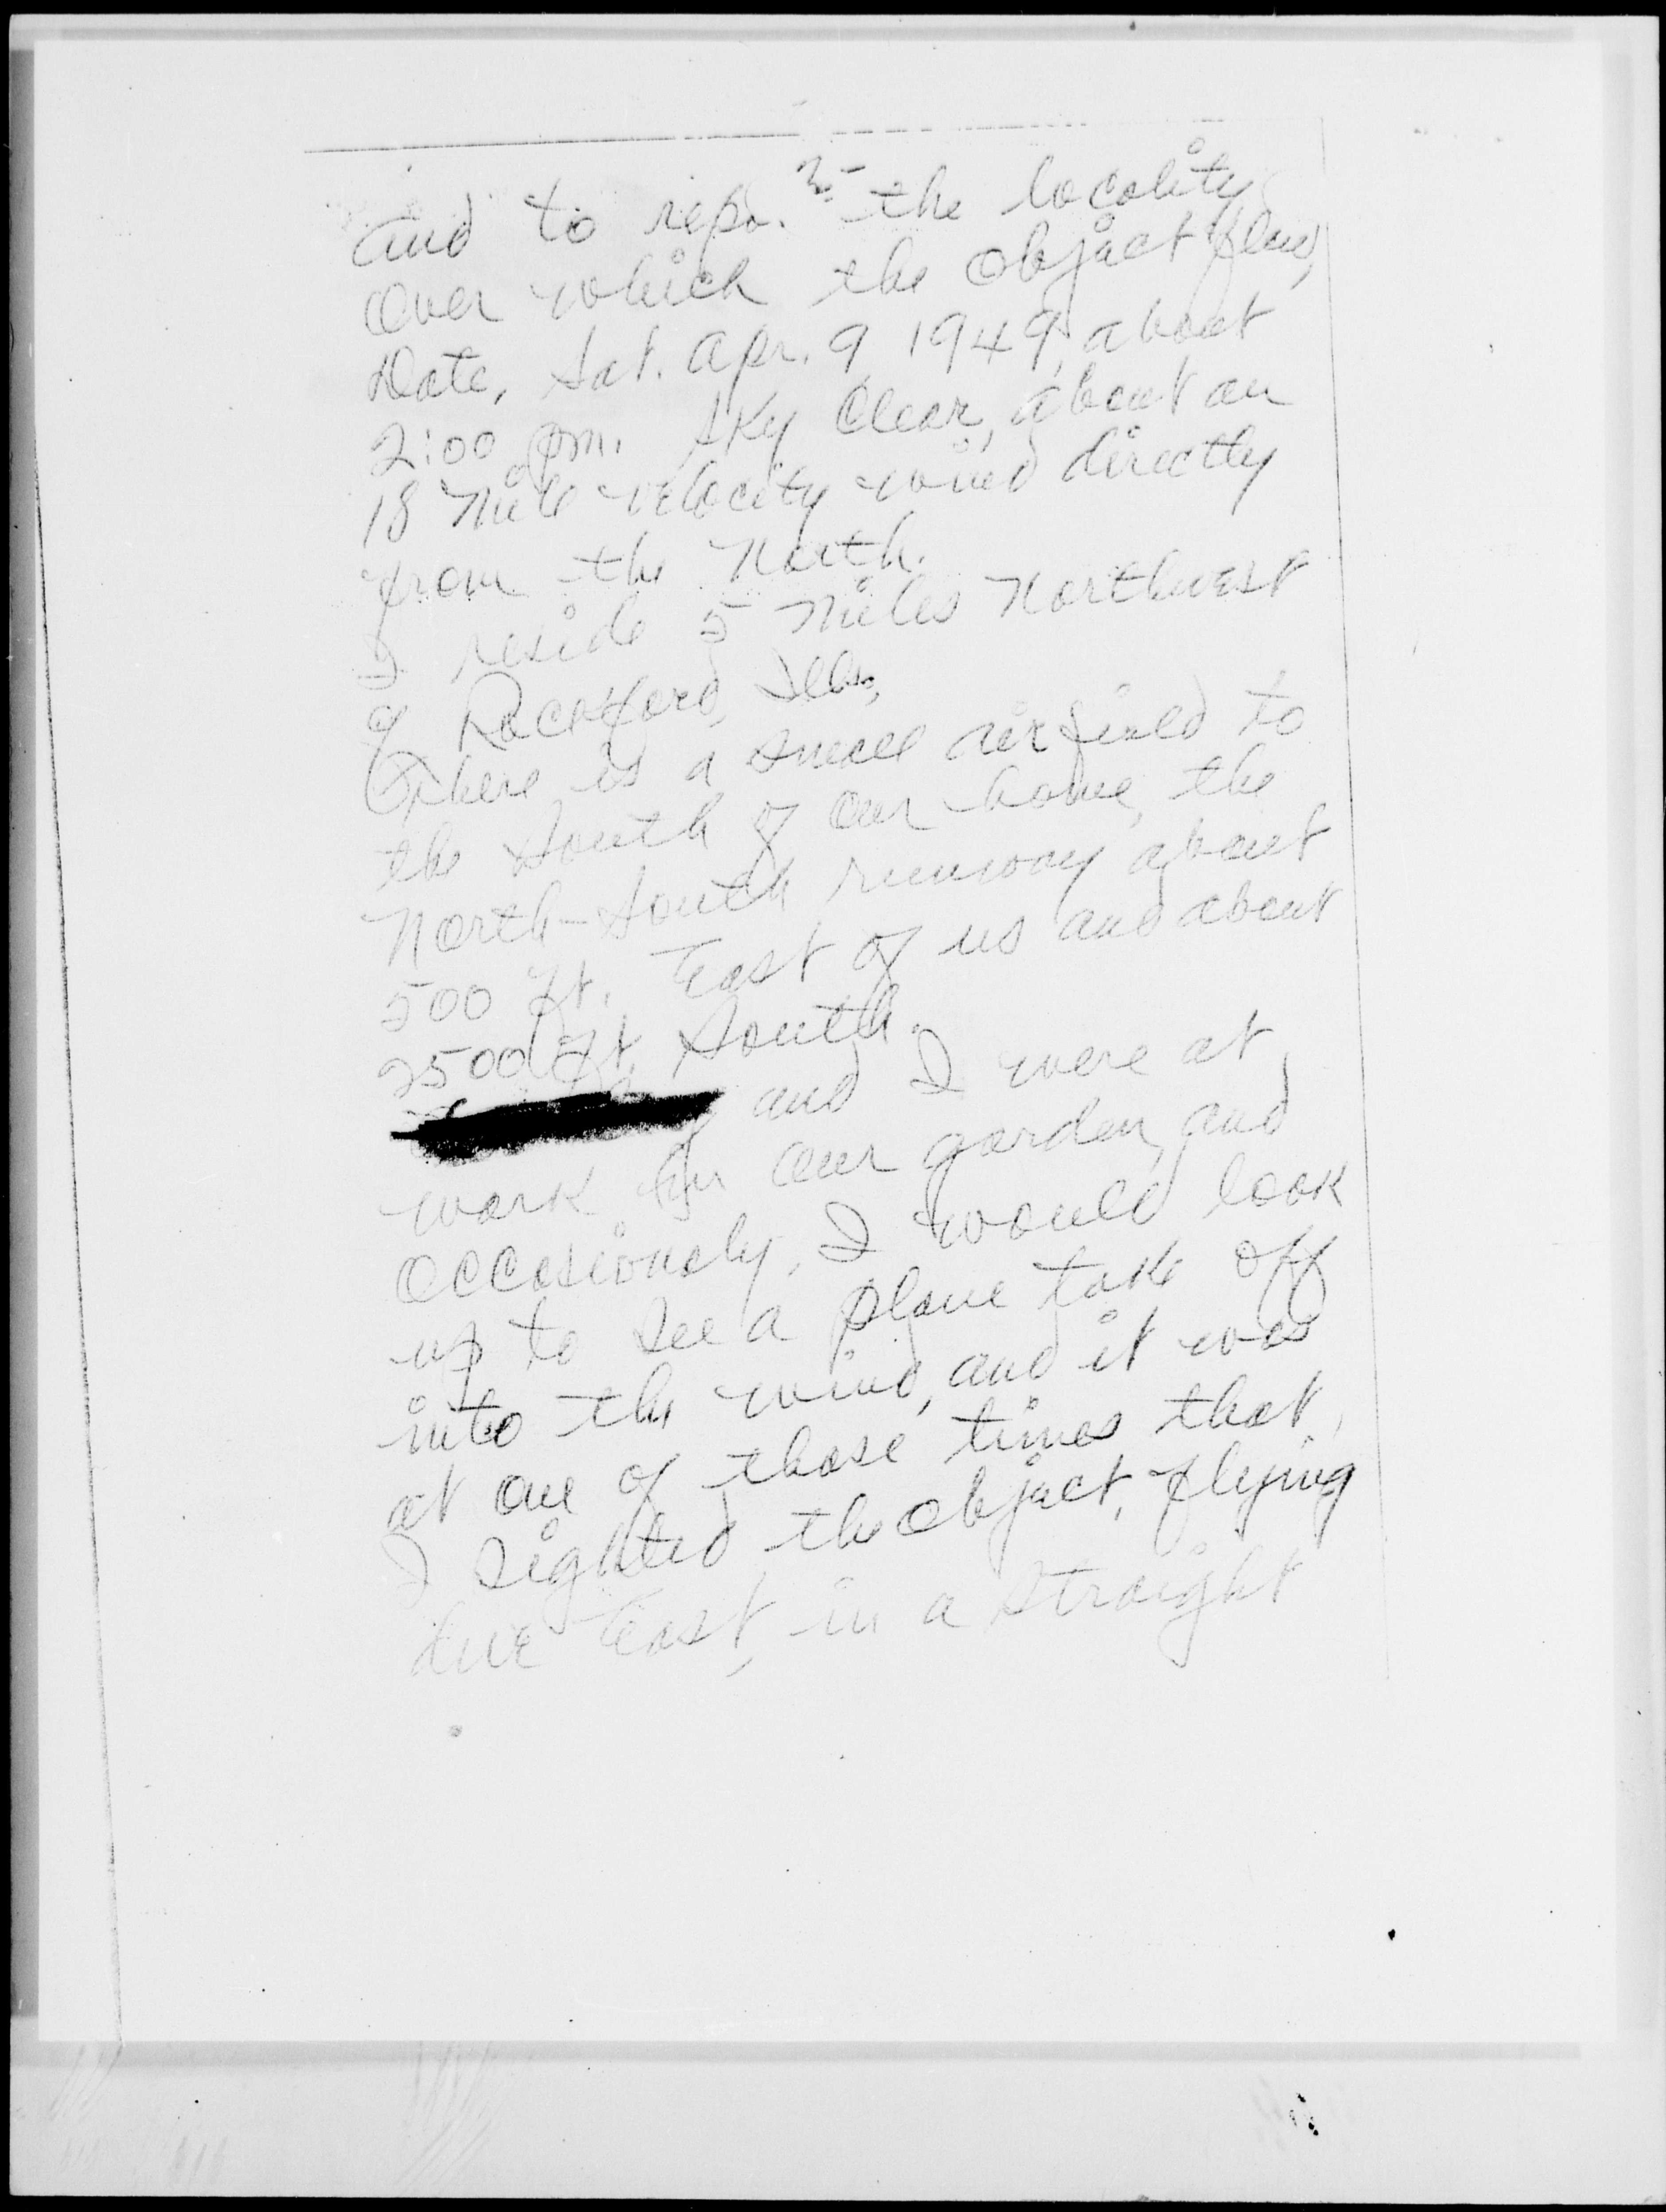 2-
and to repo. the locality
over which the object flew,
Date, Sat. Apr. 9, 1949, about
2:00 pm. Sky Clear, about an
18 mile velocity wind directly
from the North.
I reside 5 miles Northwest
of Rockford, Ills,
There is a small airfield to
the South of our home, the
North-South runway about
500 ft. East of us and about
2500 ft. South.
and I were at
work in our garden, and
occasionaly, I would look
up to see a plane take off
into the wind, and it was
at one of those times that,
I sighted the object, flying
due East, in a straight